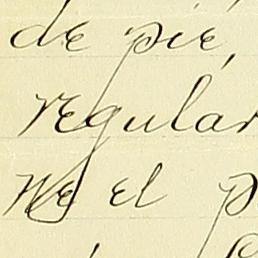 de pie,
regular
el p